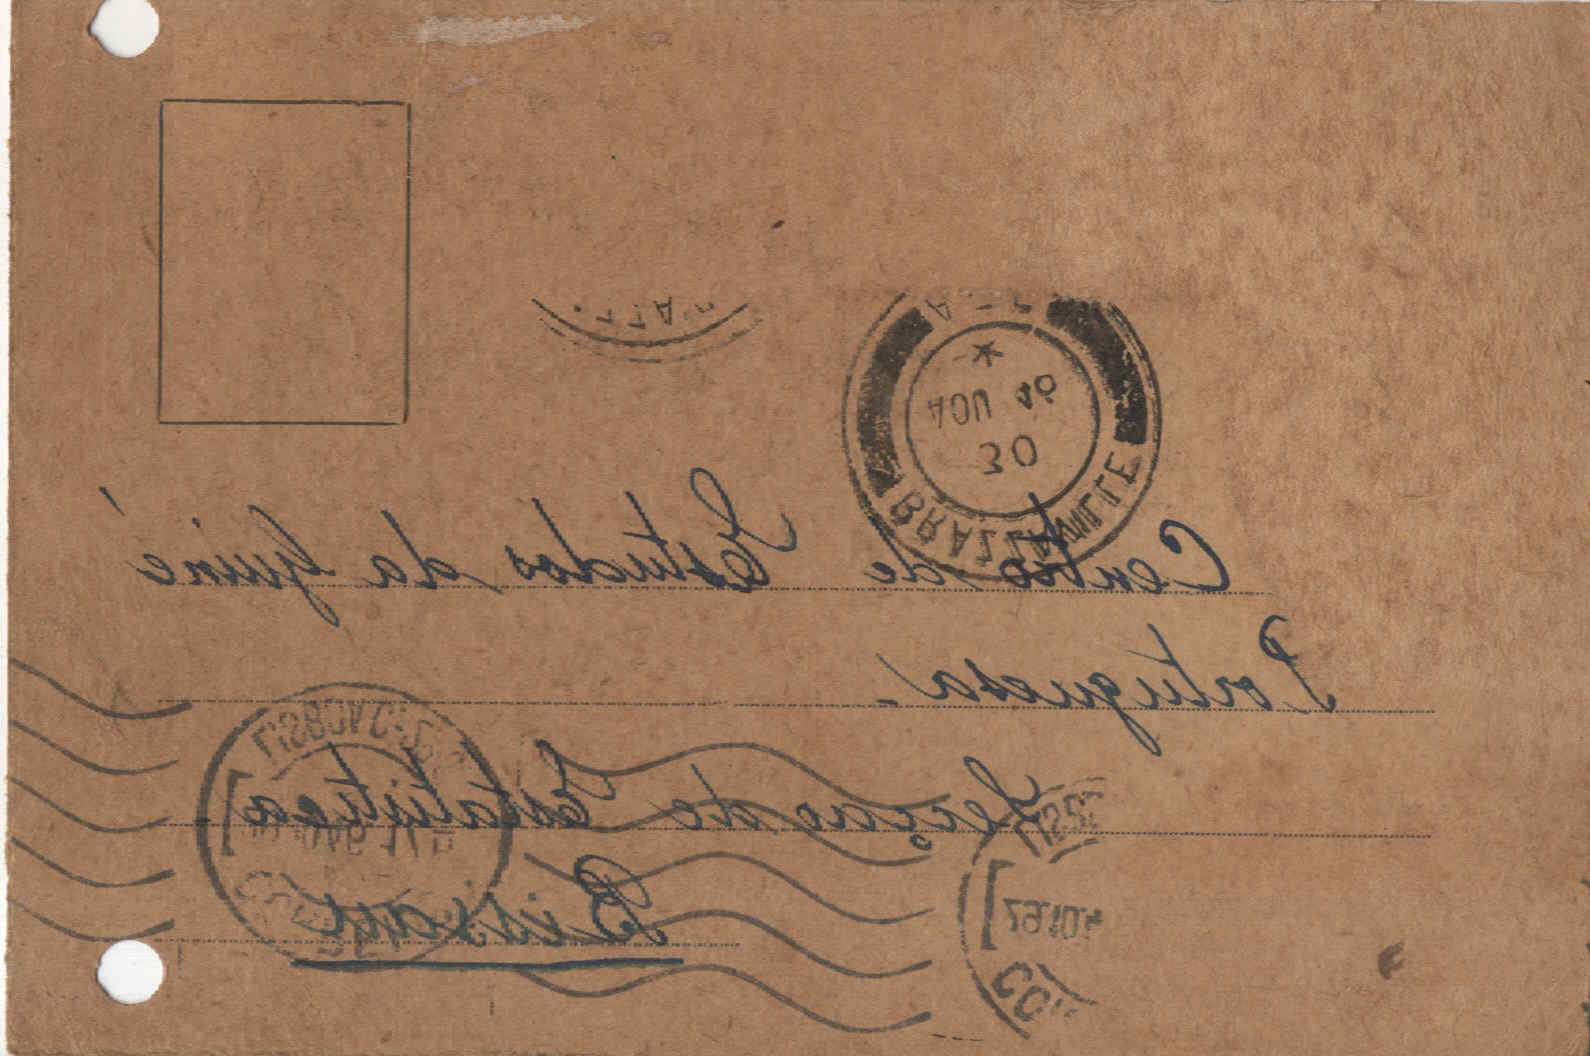 A.E.F.
AOU 46
30
BRAZZAVILLE
Centro de Estudos da Guiné
Portuguesa.
Secção de Estatística
Bissau
LISBOA